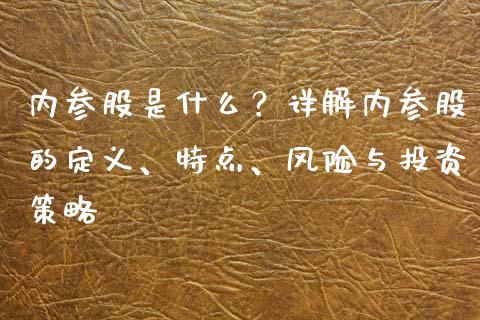 内参股是什么？详解内参股
的定义、特点、风险与投资
策略